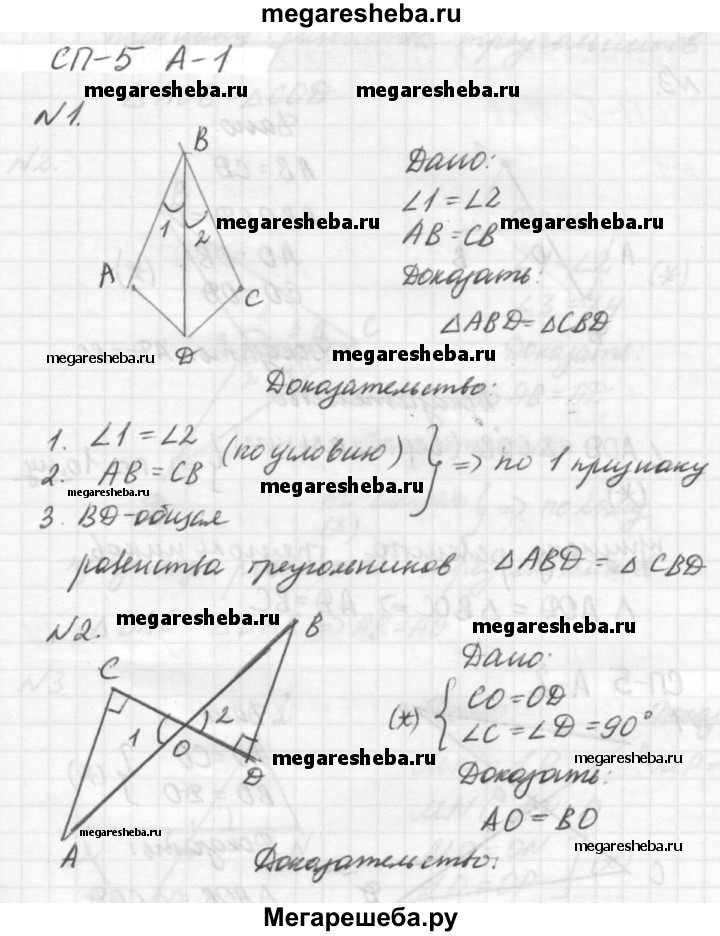 megaresheba.ru
СП-5 А-1
megaresheba.ru megaresheba.ru
№1.
B
1 2
A
C
D
Дано:
∠1 = ∠2
megaresheba.ru megaresheba.ru
AB = CB
Доказать:
△ABD = △CBD
megaresheba.ru megaresheba.ru
Доказательство:
1. ∠1 = ∠2 (по условию)
2. AB = CB
megaresheba.ru megaresheba.ru
3. BD-общая
} => по 1 признаку
равенства треугольников △ABD = △CBD
№2. megaresheba.ru megaresheba.ru
B
C
1 2
O
D
A
Дано:
(*) { CO = OD
∠C = ∠D = 90°
megaresheba.ru megaresheba.ru
Доказать:
AO = BO
megaresheba.ru megaresheba.ru
Доказательство:
Мегарешеба.ру